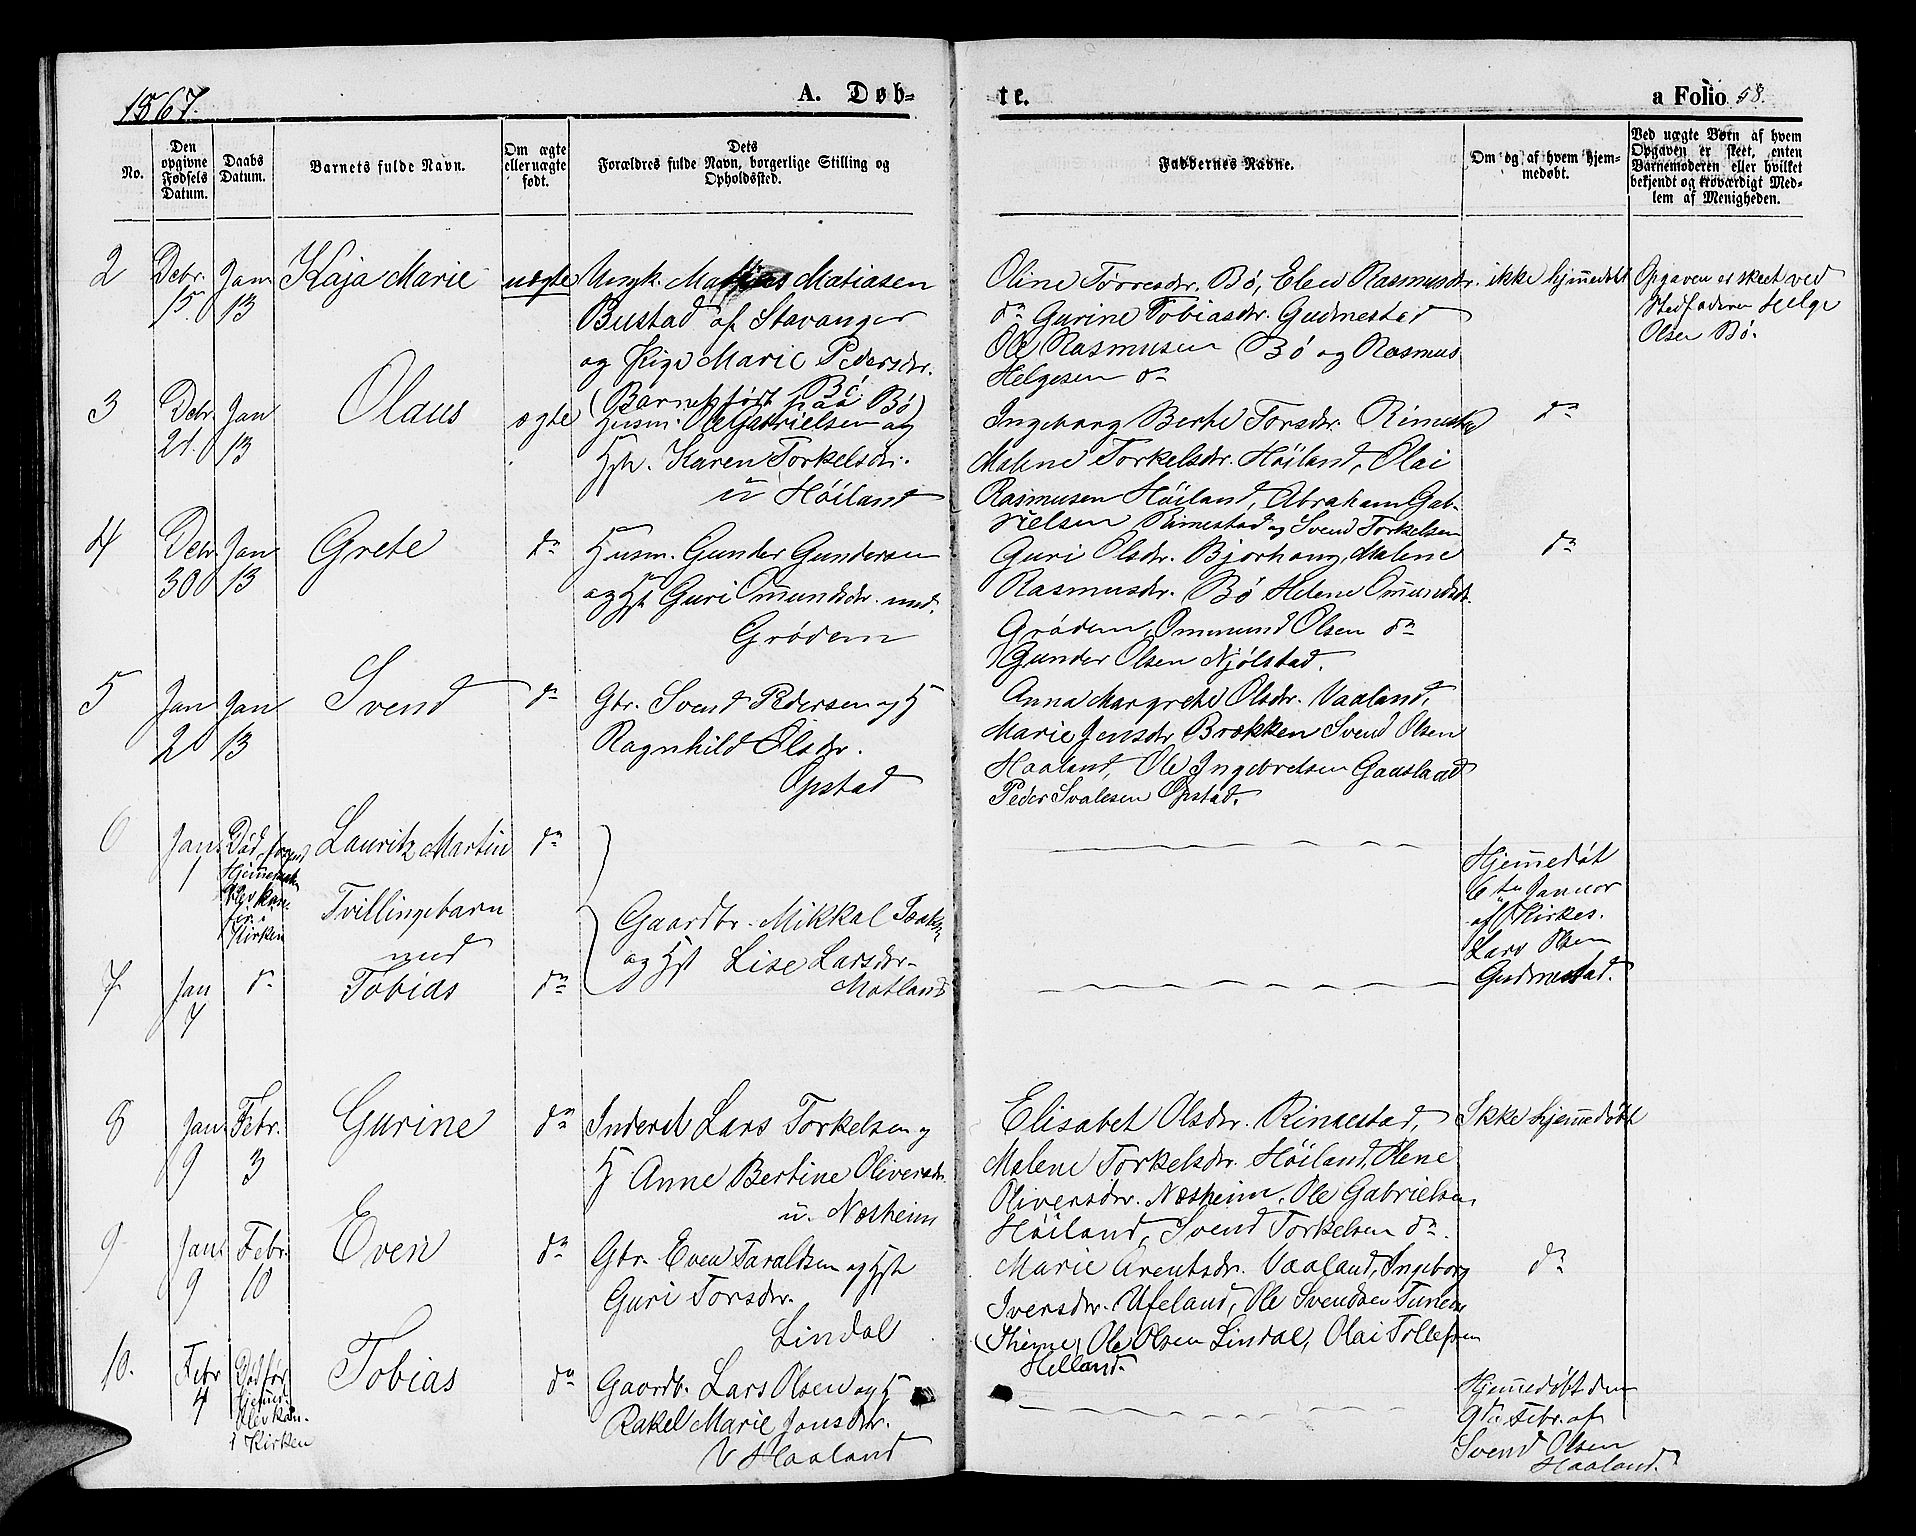 1867.
A. Døb-
te.
a Folio 58.
No.
Den opgivne Fødsels Datum.
Daabs Datum.
Barnets fulde Navn.
Om ægte eller uægte født.
Dets
Forældres fulde Navn, borgerlige Stilling og
Opholdssted.
Faddernes Navne.
Om og af hvem hjem-
medøbt.
Ved uægte Børn af hvem
Opgaven er skeet, enten
Barnemoderen eller hvilket
bekjendt og troværdigt Med-
lem af Menigheden.
2 Debr. 15 Jan 13 Kaja Marie uægte
Ungk. Matias Matiasen
Bustad af Stavanger
og Pige Marie Pedersdr.
Bø
(Barnet født paa Bø)
Oline Tørresdr. Bø, Elen Rasmusdr.
do Gurine Tobiasdr. Gudmestad
Ole Rasmusen Bø og Rasmus
Helgesen do
ikke hjemedøbt
Opgaven er skeet ved
Stedfaderen Helge
Olsen Bø.
3 Debr. 21. Jan 13 Olaus ægte
Husm. Ole Gabrielsen og
Hst. Karen Torkelsdr.
u Höiland
Ingeborg Berte Torsdr. Rimestad
Malene Torkelsdr. Höiland, Olai
Rasmusen Höiland, Abraham Gab-
rielsen Rimestad og Svend Torkelsen
do
4 Debr 30 Jan 13 Grete do
Husm. Gunder Gundersen
og Hst Guri Omundsdr. ned.
Grødem
Guri Olsdr. Bjorhaug, Malene
Rasmusdr. Bø Helene Omundsdr.
Grødem, Ommund Olsen do
Gunder Olsen Njølstad.
do
5 Jan 2 Jan 13 Svend do
Gbr. Svend Pedersen og H
Ragnhild Olsdr.
Opstad
Anna Margrete Olsdr. Vaaland,
Marie Jensdr Brækken Svend Olsen
Haaland, Ole Ingebretsen Gauslaad
Peder Svalesen Opstad.
6 Jan. 1 Død
i
Kirken
Lauritz Martin do
Tvillingebarn
med
Gaardbr. Mikkal
og Hst Lise Larsdr.
Motland
Hjemedøt
6te Januar
af Kirkes.
Lars Olsen
Gudmestad.
7 Jan 7 do Tobias do
8 Jan. 9 Febr. 3 Gurine do
Inderst Lars Torkelsen og
H Anne Bertine Oliversdr.
u. Næsheim
Elisabet Olsdr. Rimestad,
Malene Torkelsdr. Höiland, Olene
Oliversdr. Næsheim, Ole Gabrielsen
Höiland, Svend Torkelsen do.
Ikke hjemedøbt
9 Jan. 9 Febr. 10 Even do
Gbr. Even Taraldsen og Hst
Guri Torsdr.
Lindal
Marie Arentsdr. Vaaland, Ingeborg
Iversdr. Ueland, Ole Svendsen Tunem
(Thime) Ole Olsen Lindal, Olai Tollefsen
Helland.
do
10. Febr 4 Død før
hjemed.
blev kun.
i Kirken
Tobias do
Gaardb. Lars Olsen og H
Rakel Marie Jonsdr.
V Haaland
Hjemedøbt den
9de Febr. af
Svend Olsen
Haaland.